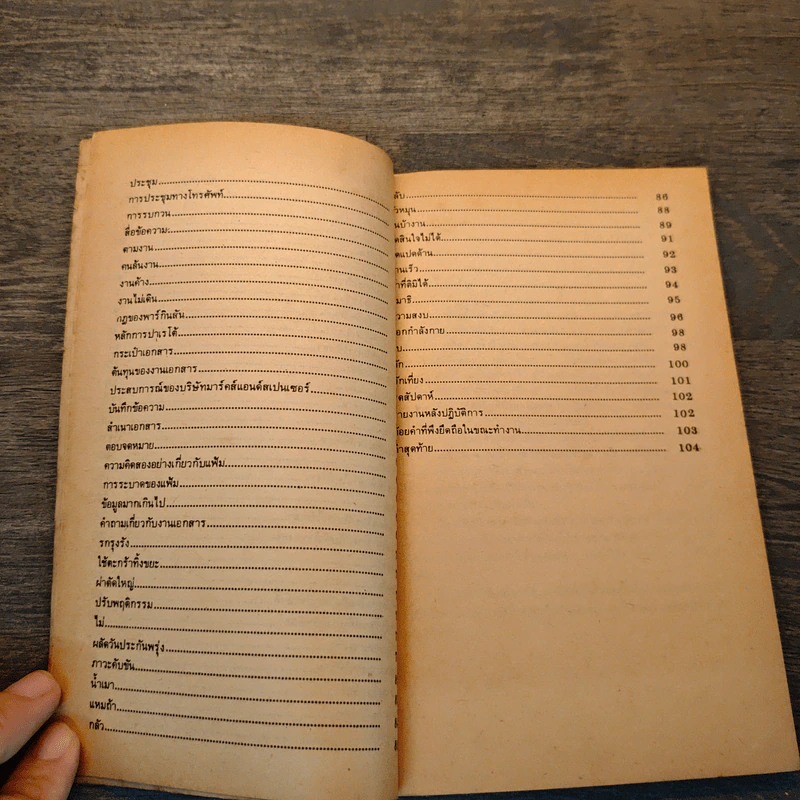 ประชุม
การประชุมทางโทรศัพท์
การรบกวน
สื่อข้อความ
ตามงาน
คนล้นงาน
งานค้าง
งานไม่เดิน
กฎของพาร์กินสัน
หลักการปาเรโต้
กระเป๋าเอกสาร
ต้นทุนของงานเอกสาร
ประสบการณ์ของบริษัทมาร์คส์แอนด์สเปนเซอร์
บันทึกข้อความ
สำเนาเอกสาร
ตอบจดหมาย
ความคิดสองอย่างเกี่ยวกับแฟ้ม
การระบาดของแฟ้ม
ข้อมูลมากเกินไป
คำถามเกี่ยวกับงานเอกสาร
รกรุงรัง
ใช้ตะกร้าทิ้งขยะ
ผ่าตัดใหญ่
ปรับพฤติกรรม
ไม่
ผลัดวันประกันพรุ่ง
ภาวะคับขัน
น้ำเมา
แหมถ้า
กลัว
ลับ 86
หมุน 88
นบ้างาน 89
สินใจไม่ได้ 91
ดแปดด้าน 92
านเร็ว 93
ที่ลิมิได้ 94
มาธิ 95
วามสงบ 96
อกกำลังกาย 98
บ 98
ัก 100
ักเที่ยง 101
ดสัปดาห์ 102
ายงานหลังปฏิบัติการ 102
้อยคำที่พึงยึดถือในขณะทำงาน 103
สุดท้าย 104